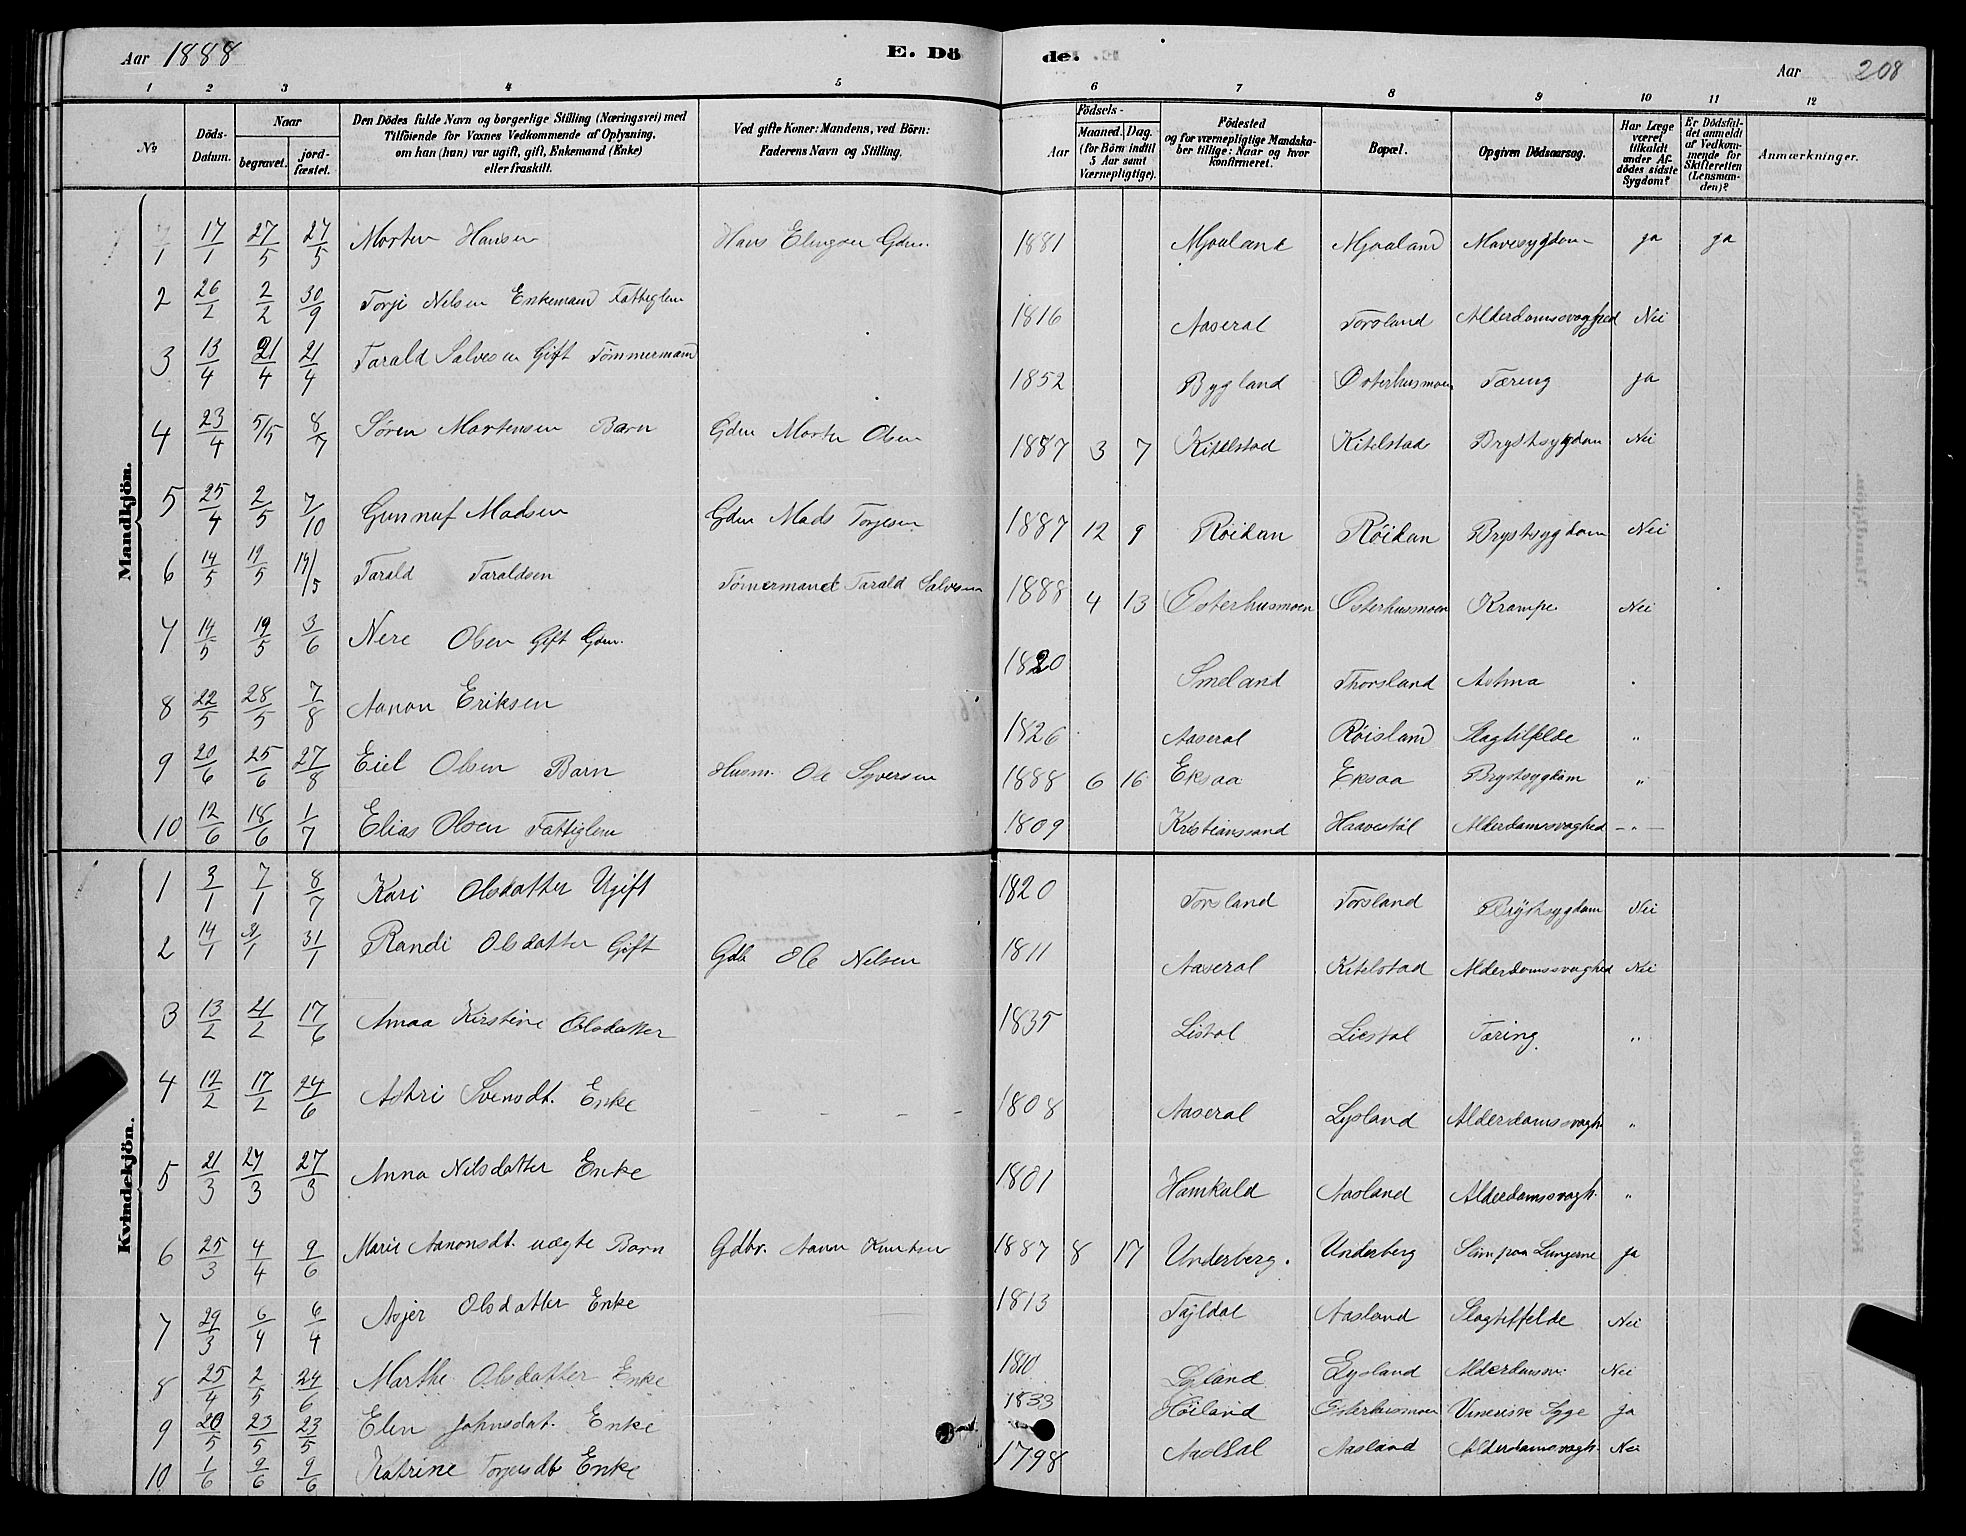 Aar 1888 E. Dö de. Aar 208
1 2 3 4 5 6 7 8 9 10 11 12
№ Döds-Datum. Naar begravet. jord-fæstet. Den Dödes fulde Navn og borgerlige Stilling (Næringsvei) med Tilföiende for Voxnes Vedkommende af Oplysning, om han (hun) var ugift, gift, Enkemand (Enke) eller fraskilt. Ved gifte Koner: Mandens, ved Börn: Faderens Navn og Stilling. Aar Födsels- Maaned. Dag. (for Börn indtil 5 Aar samt Værnepligtige). Födested og for værnepligtige Mandskaber tillige: Naar og hvor konfirmeret. Bopæl. Opgiven Dödsaarsag. Har Læge været tilkaldt under Afdödes sidste Sygdom? Er Dödsfaldet anmeldt af Vedkommende for Skifteretten (Lensmanden)? Anmærkninger.
Mandkjön.
1 17/1 27/5 27/5 Morten Hansen Hans Elingsen Gdm. 1881 Mjaaland Mjaaland Mavesygdom ja ja
2 26/1 2/2 30/9 Torje Nelsen Enkemand Fattiglem 1816 Aaseral Torsland Alderdomssvaghed Nei
3 13/4 21/4 21/4 Tarald Salvesen Gift Tømmermand 1852 Bygland Østerhusmoen Tæring ja
4 23/4 5/5 8/7 Søren Mortensen Barn Gdm Morten Olsen 1887 3 7 Kitelstad Kitelstad Brystsygdom Nei
5 25/4 2/5 7/10 Gunnuf Madsen Gdm Mads Torjesen 1887 12 9 Røidan Røidan Brystsygdom Nei
6 14/5 19/5 19/5 Tarald Taraldsen Tømermand Tarald Salvesen 1888 4 13 Østerhusmoen Østerhusmoen Krampe Nei
7 14/5 19/5 3/6 Nere Olsen Gift Gdm. 1820 Smeland Thorsland Astma
8 22/5 28/5 7/8 Aanon Eriksen 1826 Aaseral Røisland Slagtilfelde "
9 20/6 25/6 27/8 Eiel Olsen Barn Husm. Ole Syversen 1888 6 16 Eksaa Eksaa Brystsygdom "
10 12/6 18/6 1/7 Elias Olsen Fattiglem 1809 Kristianssand Haavestøl Alderdomssvaghed — " —
Kvindekjön.
1 3/1 7/1 8/7 Kari Olsdatter Ugift 1820 Torsland Torsland Brystsygdom Nei
2 14/1 31/1 31/1 Randi Olsdatter Gift Gdb Ole Nelsen 1811 Aaseral Kitelstad Alderdomssvaghed Nei
3 13/2 21/2 17/6 Amaa Kirstine Olsdatter 1835 Listøl Liestøl Tæring "
4 12/2 17/2 24/6 Astri Svensdt. Enke - - - - 1808 Aaseral Lysland Alderdomssvagh "
5 21/3 27/3 27/3 Anna Nilsdatter Enke 1801 Hamkald Aasland Alderdomssvagh. "
6 25/3 4/4 9/6 Marie Aanonsdt. uægte Barn Gdbr. Aanon Knutsen 1887 8 17 Underberg. Underberg Slim paa Lungerne ja
7 29/3 6/4 6/4 Asjer Olsdatter Enke 1813 Aasland Slagtilfelde Nei
8 25/4 2/5 24/6 Marthe Olsdatter Enke 1810 Lysland Alderdomsv. Nei
9 20/5 23/5 23/5 Elen Johnsdat. Enke 1833 Høiland Østerhusmoen Venerisk Syge ja
10 1/6 9/6 9/6 Katrine Torjersdt Enke 1798 Aasland Alderdomsvagh. Nei